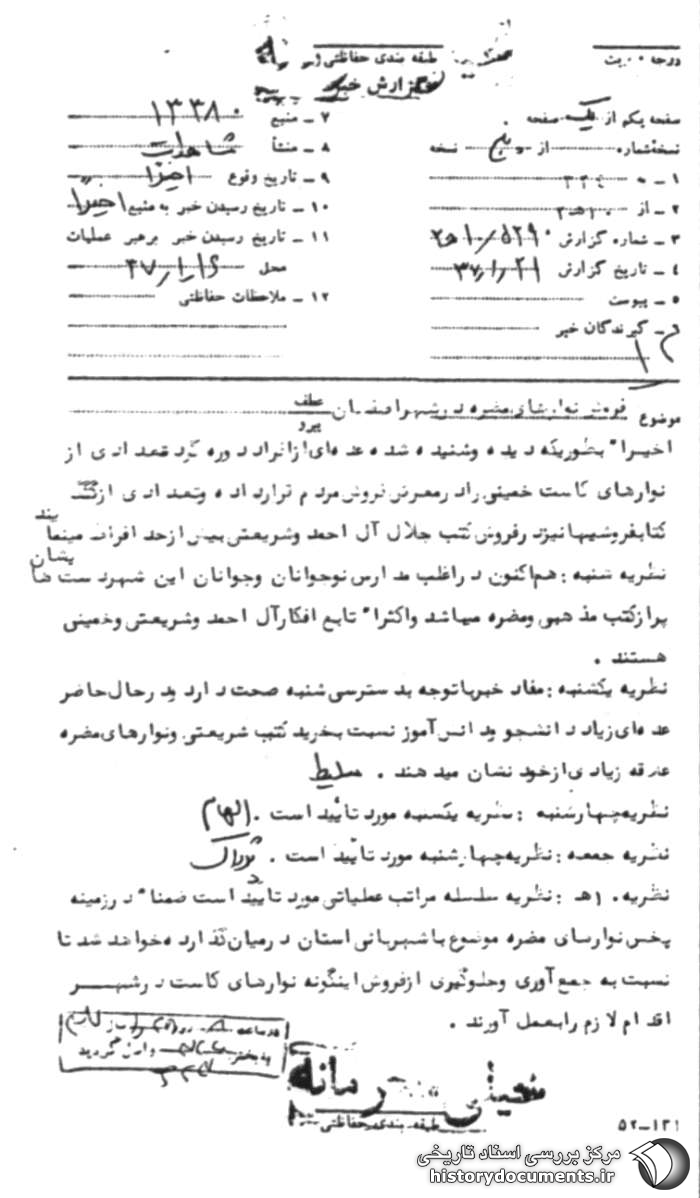 طبقه بندی حفاظتی
گزارش خبر
درجه
صفحه یکم از یک صفحه
نسخه شماره از پنج نسخه
۱ ـ به ۳۴۰
۲ ـ از
۳ ـ شماره گزارش
۴ ـ تاریخ گزارش ۳۷/۱/۲۱
۵ ـ پیوست
۶ ـ گیرندگان خبر
۷ ـ منبع ۱۳۳۸۰
۸ ـ منشأ مشاهدات
۹ ـ تاریخ وقوع اخیراً
۱۰ ـ تاریخ رسیدن خبر به منبع اخیراً
۱۱ ـ تاریخ رسیدن خبر برهبر عملیات
محل ۳۷/۱/۱۶
۱۲ ـ ملاحظات حفاظتی
موضوع فروش نوارهای مضره در شهر اصفهان عطف
پیرو
اخیراً بطوریکه دیده وشنیده شده عده‌ای از افراد دوره گرد تعدادی از
نوارهای کاست خمینی رادرمعرض فروش مردم قرارداده وتعدادی از
کتابفروشیها نیزدرفروش کتب جلال آل احمد وشریعتی بیش ازحد افراط مینمایند
نظریه شنبه : هم اکنون در اغلب مدارس نوجوانان وجوانان این شهر دست هایشان
پرازکتب مذهبی ومضره میباشد واکثراً تابع افکارآل احمد وشریعتی وخمینی
هستند .
نظریه یکشنبه : مفاد خبرباتوجه بدسترسی شنبه صحت دارد ودرحال حاضر
عده‌ای زیاد دانشجو ودانش آموز نسبت بخرید کتب شریعتی ونوارهای مضره
علاقه زیادی ازخود نشان میدهند . سلیط
نظریه چهارشنبه : نظریه یکشنبه مورد تأیید است . الهام
نظریه جمعه : نظریه چهارشنبه مورد تأیید است .
نظریه ۱۰هـ : نظریه سلسله مراتب عملیاتی مورد تأیید است ضمناً درزمینه
پخش نوارهای مضره موضوع باشهربانی استان درمیان گذارده خواهد شد تا
نسبت به جمع آوری وجلوگیری ازفروش اینگونه نوارهای کاست درشهر
اقدام لازم رابعمل آورند .
در ساعت روز
به بخش وارد گردید
خیلی محرمانه
طبقه بندی حفاظتی
۵۲ـ۱۲۱
مرکز بررسی اسناد تاریخی
historydocuments.ir